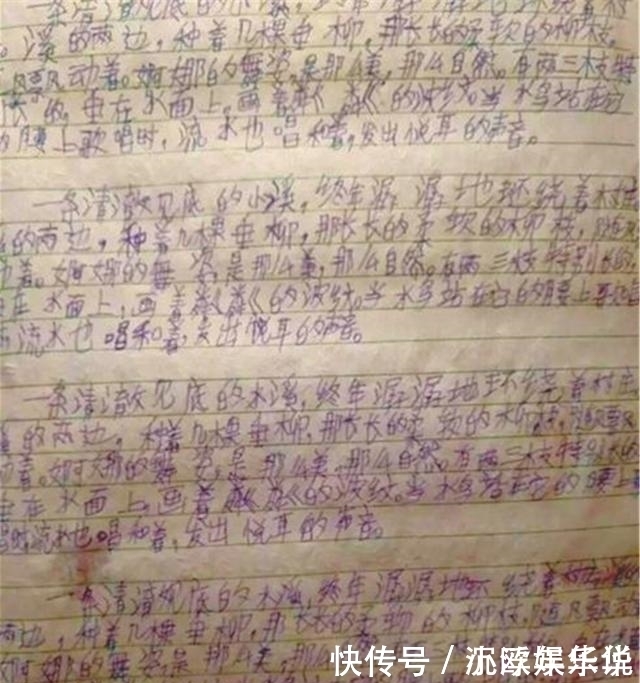 一条清澈见底的小溪,终年潺潺地环绕着村
。溪的两边,种着几棵垂柳,那长长的柔软的柳枝,
随风飘动着。婀娜的舞姿,是那么美,那么自然。有两三枝特
长的,垂在水面上,画着粼粼的波纹。当水鸟站在它
的腰上歌唱时,流水也唱和着,发出悦耳的声音。
一条清澈见底的小溪,终年潺潺地环绕着村庄
的两边,种着几棵垂柳,那长长的柔软的柳枝,随风
动着。婀娜的舞姿,是那么美,那么自然。有两三枝特别长的
在水面上,画着粼粼的波纹。当水鸟站在它的腰上歌唱
流水也唱和着,发出悦耳的声音。
一条清澈见底的水溪,终年潺潺地环绕着村庄
的两边,种着几棵垂柳,那长长的柔软的柳枝,随风飘
动着。婀娜的舞姿,是那么美,那么自然。有两三枝特别长的
垂在水面上,画着粼粼的波纹。当水鸟站在它的腰上
唱时流水也唱和着,发出悦耳的声音。
一条清清见底的水溪,终年潺潺地环绕着村
两边,种着几棵垂柳,那长长的柔软的柳枝,随风飘动
婀娜的舞姿,是那么美,那么
快传号/沉欧娱乐说